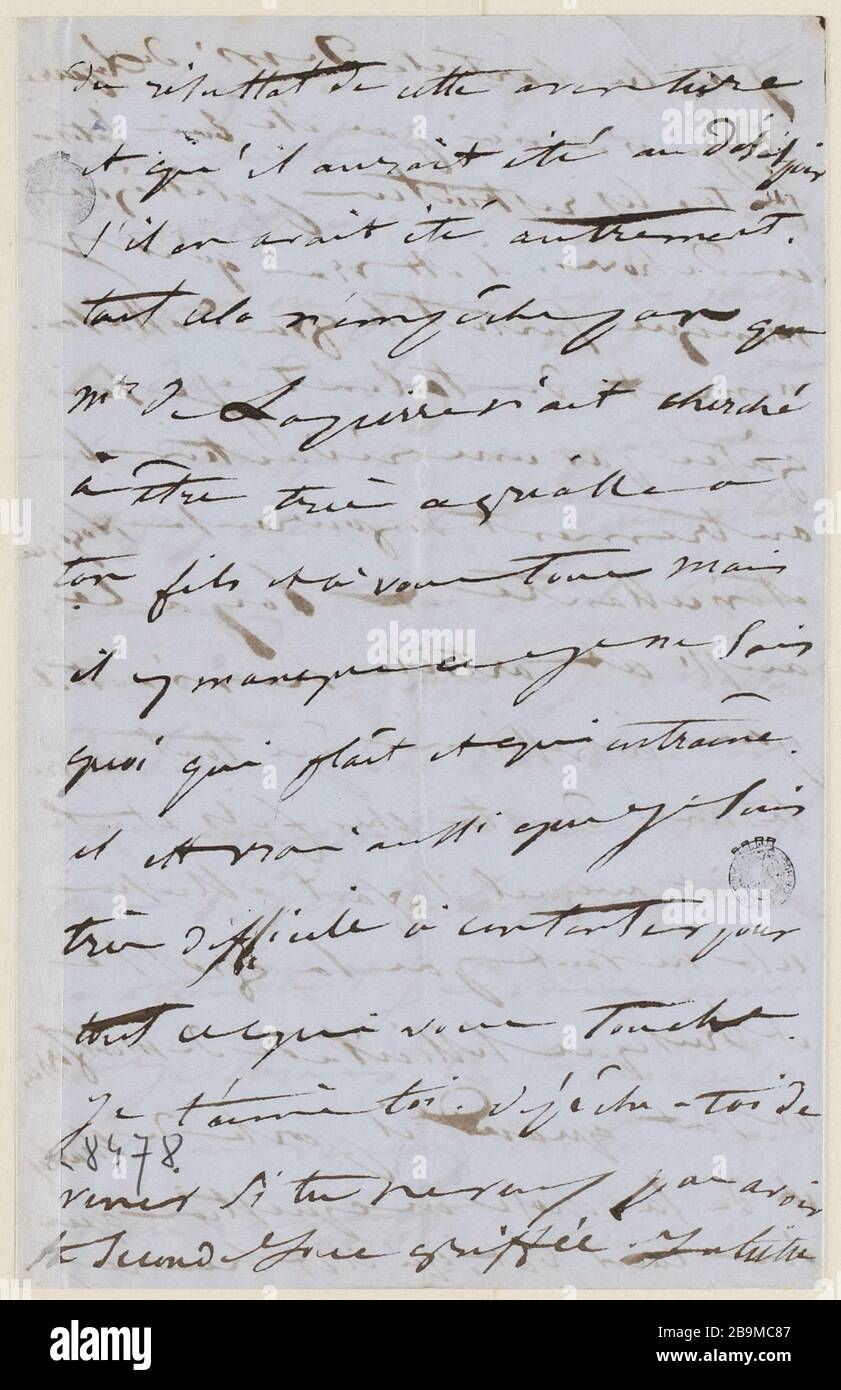 du résultat de cette aventure
et qu'il aurait été au désespoir
s'il en avait été autrement.
tout cela n'empêche pas que
Mr de Laguerre n'ait cherché
à être très agréable à
ton fils et à vous tous mais
il y manque ce je ne sais
quoi qui plaît et qui entraîne.
il est vrai aussi que je suis
très difficile à contenter pour
tout ce qui vous touche.
Je t'aime toi. dépêche-toi de
28478
venir si tu ne veux pas avoir
la seconde joue griffée. Juliette
alamy
Image ID: 2B9MC87
www.alamy.com